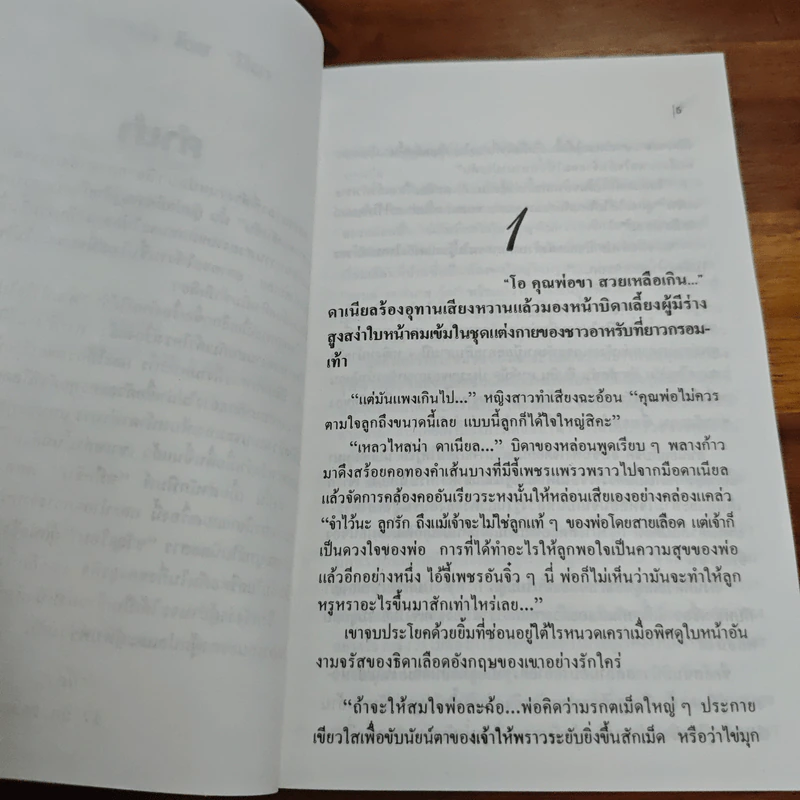 5
1
"โอ คุณพ่อขา สวยเหลือเกิน..."
ดาเนียลร้องอุทานเสียงหวานแล้วมองหน้าบิดาเลี้ยงผู้มีร่าง
สูงสง่าใบหน้าคมเข้มในชุดแต่งกายของชาวอาหรับที่ยาวกรอม-
เท้า
“แต่มันแพงเกินไป...” หญิงสาวทำเสียงฉะอ้อน “คุณพ่อไม่ควร
ตามใจลูกถึงขนาดนี้เลย แบบนี้ลูกก็ได้ใจใหญ่สิคะ”
“เหลวไหลน่า ดาเนียล...” บิดาของหล่อนพูดเรียบ ๆ พลางก้าว
มาดึงสร้อยคอทองคำเส้นบางที่มีจี้เพชรแพรวพราวไปจากมือดาเนียล
แล้วจัดการคล้องคออันเรียวระหงนั้นให้หล่อนเสียเองอย่างคล่องแคล่ว
“จำไว้นะ ลูกรัก ถึงแม้เจ้าจะไม่ใช่ลูกแท้ ๆ ของพ่อโดยสายเลือด แต่เจ้าก็
เป็นดวงใจของพ่อ การที่ได้ทำอะไรให้ลูกพอใจเป็นความสุขของพ่อ
แล้วอีกอย่างหนึ่ง ไอ้จี้เพชรอันจิ๋ว ๆ นี่ พ่อก็ไม่เห็นว่ามันจะทำให้ลูก
หรูหราอะไรขึ้นมาสักเท่าไหร่เลย...”
เขาจบประโยคด้วยยิ้มที่ซ่อนอยู่ใต้ไรหนวดเคราเมื่อพิศดูใบหน้าอัน
งามจรัสของธิดาเลือดอังกฤษของเขาอย่างรักใคร่
“ถ้าจะให้สมใจพ่อละค้อ...พ่อคิดว่ามรกตเม็ดใหญ่ ๆ ประกาย
เขียวใสเพื่อขับนัยน์ตาของเจ้าให้พราวระยับยิ่งขึ้นสักเม็ด หรือว่าไข่มุก